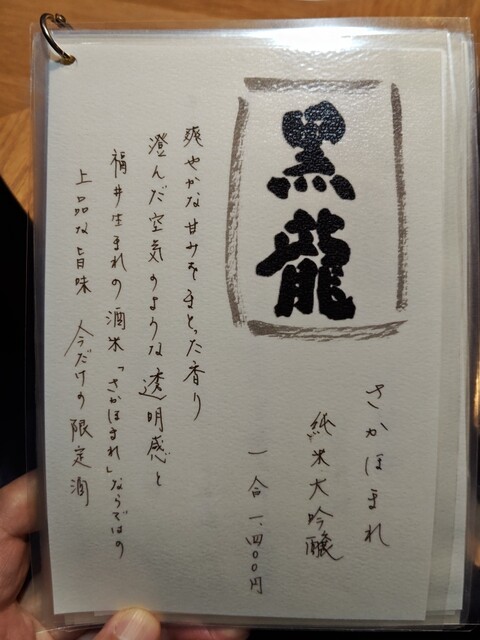 黒龍
さかほまれ
純米大吟醸
一合 一、四〇〇円
爽やかな甘みをまとった香り
澄んだ空気のような透明感と
福井生まれの酒米「さかほまれ」ならではの
上品な旨味 今だけの限定酒